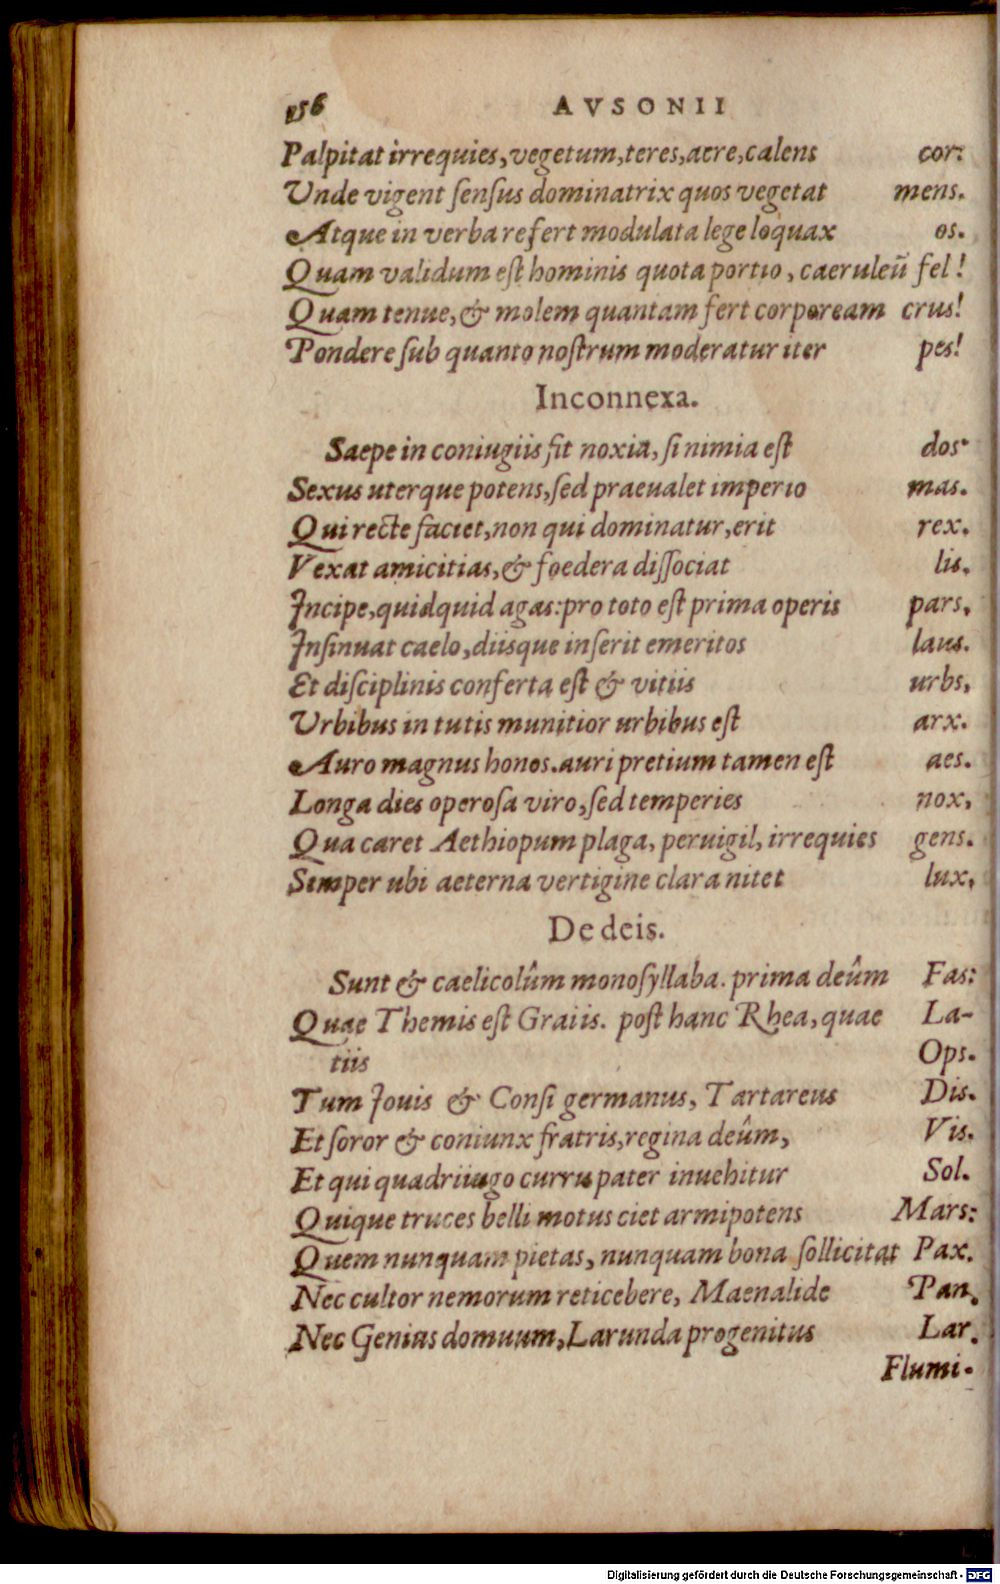 156 AVSONII
Palpitat irrequies, vegetum, teres, acre, calens cor:
Unde vigent ſenſus dominatrix quos vegetat mens.
Atque in verba refert modulata lege loquax os.
Quam validum eſt hominis quota portio, caeruleũ fel!
Quam tenue, & molem quantam fert corpoream crus!
Pondere ſub quanto noſtrum moderatur iter pes!
Inconnexa.
Saepe in coniugiis fit noxia, ſi nimia eſt dos.
Sexus uterque potens, ſed praeualet imperio mas.
Qui recte faciet, non qui dominatur, erit rex.
Vexat amicitias, & foedera diſſociat lis.
Incipe, quidquid agas: pro toto eſt prima operis pars,
Inſinuat caelo, diisque inſerit emeritos laus.
Et diſciplinis conferta eſt & vitiis urbs,
Urbibus in tutis munitior urbibus eſt arx.
Auro magnus honos. auri pretium tamen eſt aes.
Longa dies operoſa viro, ſed temperies nox,
Qua caret Aethiopum plaga, peruigil, irrequies gens.
Semper ubi aeterna vertigine clara nitet lux,
De deis.
Sunt & caelicolûm monoſyllaba. prima deûm Fas:
Quae Themis eſt Graiis. poſt hanc Rhea, quae La-
tiis Ops.
Tum Jouis & Conſi germanus, Tartareus Dis.
Et ſoror & coniunx fratris, regina deûm, Vis.
Et qui quadriiugo curru pater inuehitur Sol.
Quique truces belli motus ciet armipotens Mars:
Quem nunquam pietas, nunquam bona ſollicitat Pax.
Nec cultor nemorum reticebere, Maenalide Pan.
Nec Genius domuum, Larunda progenitus Lar.
Flumi-
Digitalisierung gefördert durch die Deutsche Forschungsgemeinschaft - DFG